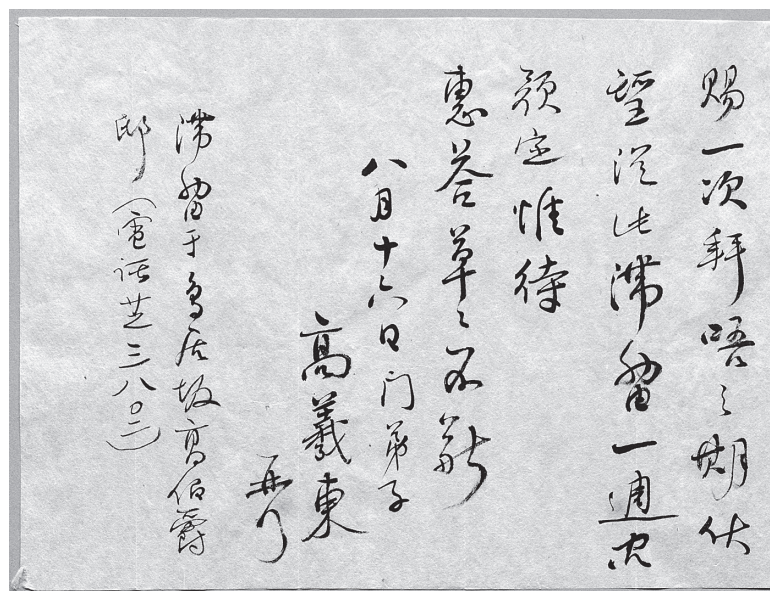 賜一次拜唔之期伏
望從此滯留一週間
預定惟待
惠答草〻不敬
八月十六日門弟子
高羲東
再行
滯留于鳥居坂高伯爵
邸（電話芝三八〇二）